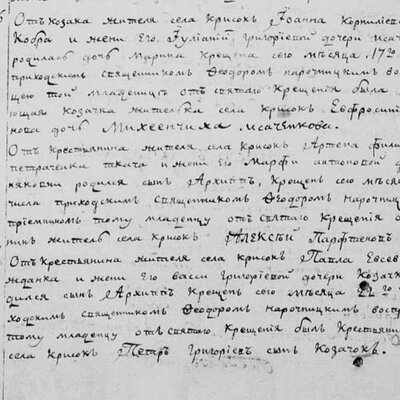 Отъ козака жителя села Крисокъ Iоанна Корнилiева
Кобра и жени Его Iулiанiи Григорiевой дочери Исач
родилась дочь Марина Крещена сего месяца 17го
приходскимъ священникомъ Феодоромъ Нарочицкимъ во
цею той младенцу отъ святаго Крещенiя была
ющая козачка жителька села Крисокъ Евфросинi
нова дочь Михеенчиха Исаченкова.
Отъ крестьянина жителя села Крисокъ Артема Фили
петраченка ткача и жени Его Марфи антоновой д
родился сынъ Архиппъ, Крещенъ сего месяца
числа приходскимъ священникомъ Феодоромъ Нарочиц
прiемникомъ тому младенцу отъ святаго Крещенiя
житель села Крисокъ Алексѣй Парфеновъ
Отъ Крестьянина жителя села Крисокъ Павла Евсев
жданка и жени Его васси григорiевой дочери Козачк
дился сынъ Архиппъ Крещенъ сего месяца 22го
ходскимъ священникомъ Феодоромъ Нарочицкимъ воспр
тому младенцу отъ святаго Крещенiя былъ Крестьяни
села Крисокъ Петръ Григорiевъ сынъ Козачокъ.